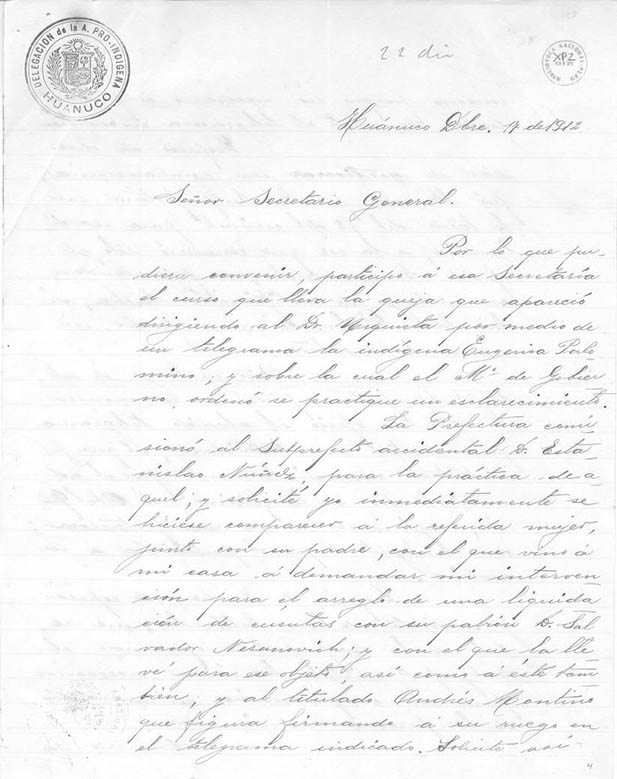 DELEGACION de la A. PRO-INDIGENA
HUANUCO
22 dic
BIBLIOTECA NACIONAL-PERU
XPZ
Huánuco Dbre. 17 de 1912.
Señor Secretario General.
Por lo que pu-
diera convenir, participo á esa Secretaría
el curso que lleva la queja que apareció
dirigiendo al Dr. Urquieta por medio de
un telegrama la indígena Eugenia Palo-
mino; y sobre la cual el Mº de Gobier-
no, ordenó se practique un esclarecimiento.
La Prefectura comi-
sionó al Subprefecto accidental D. Esta-
nislao Núñez, para la práctica de a-
quel; y solicité yo inmediatamente se
hiciese comparecer á la referida mujer,
junto con su padre, con el que vino á
mi casa á demandar mi interven-
ción para el arreglo de una liquida-
ción de cuentas con su patrón D. Sal-
vador Nesanovich; y con el que la lle-
vé para ese objeto, así como á éste tam-
bién; y al titulado Andrés Montino
que figura firmando á su ruego en
el telegrama indicado. Solicité así-
4